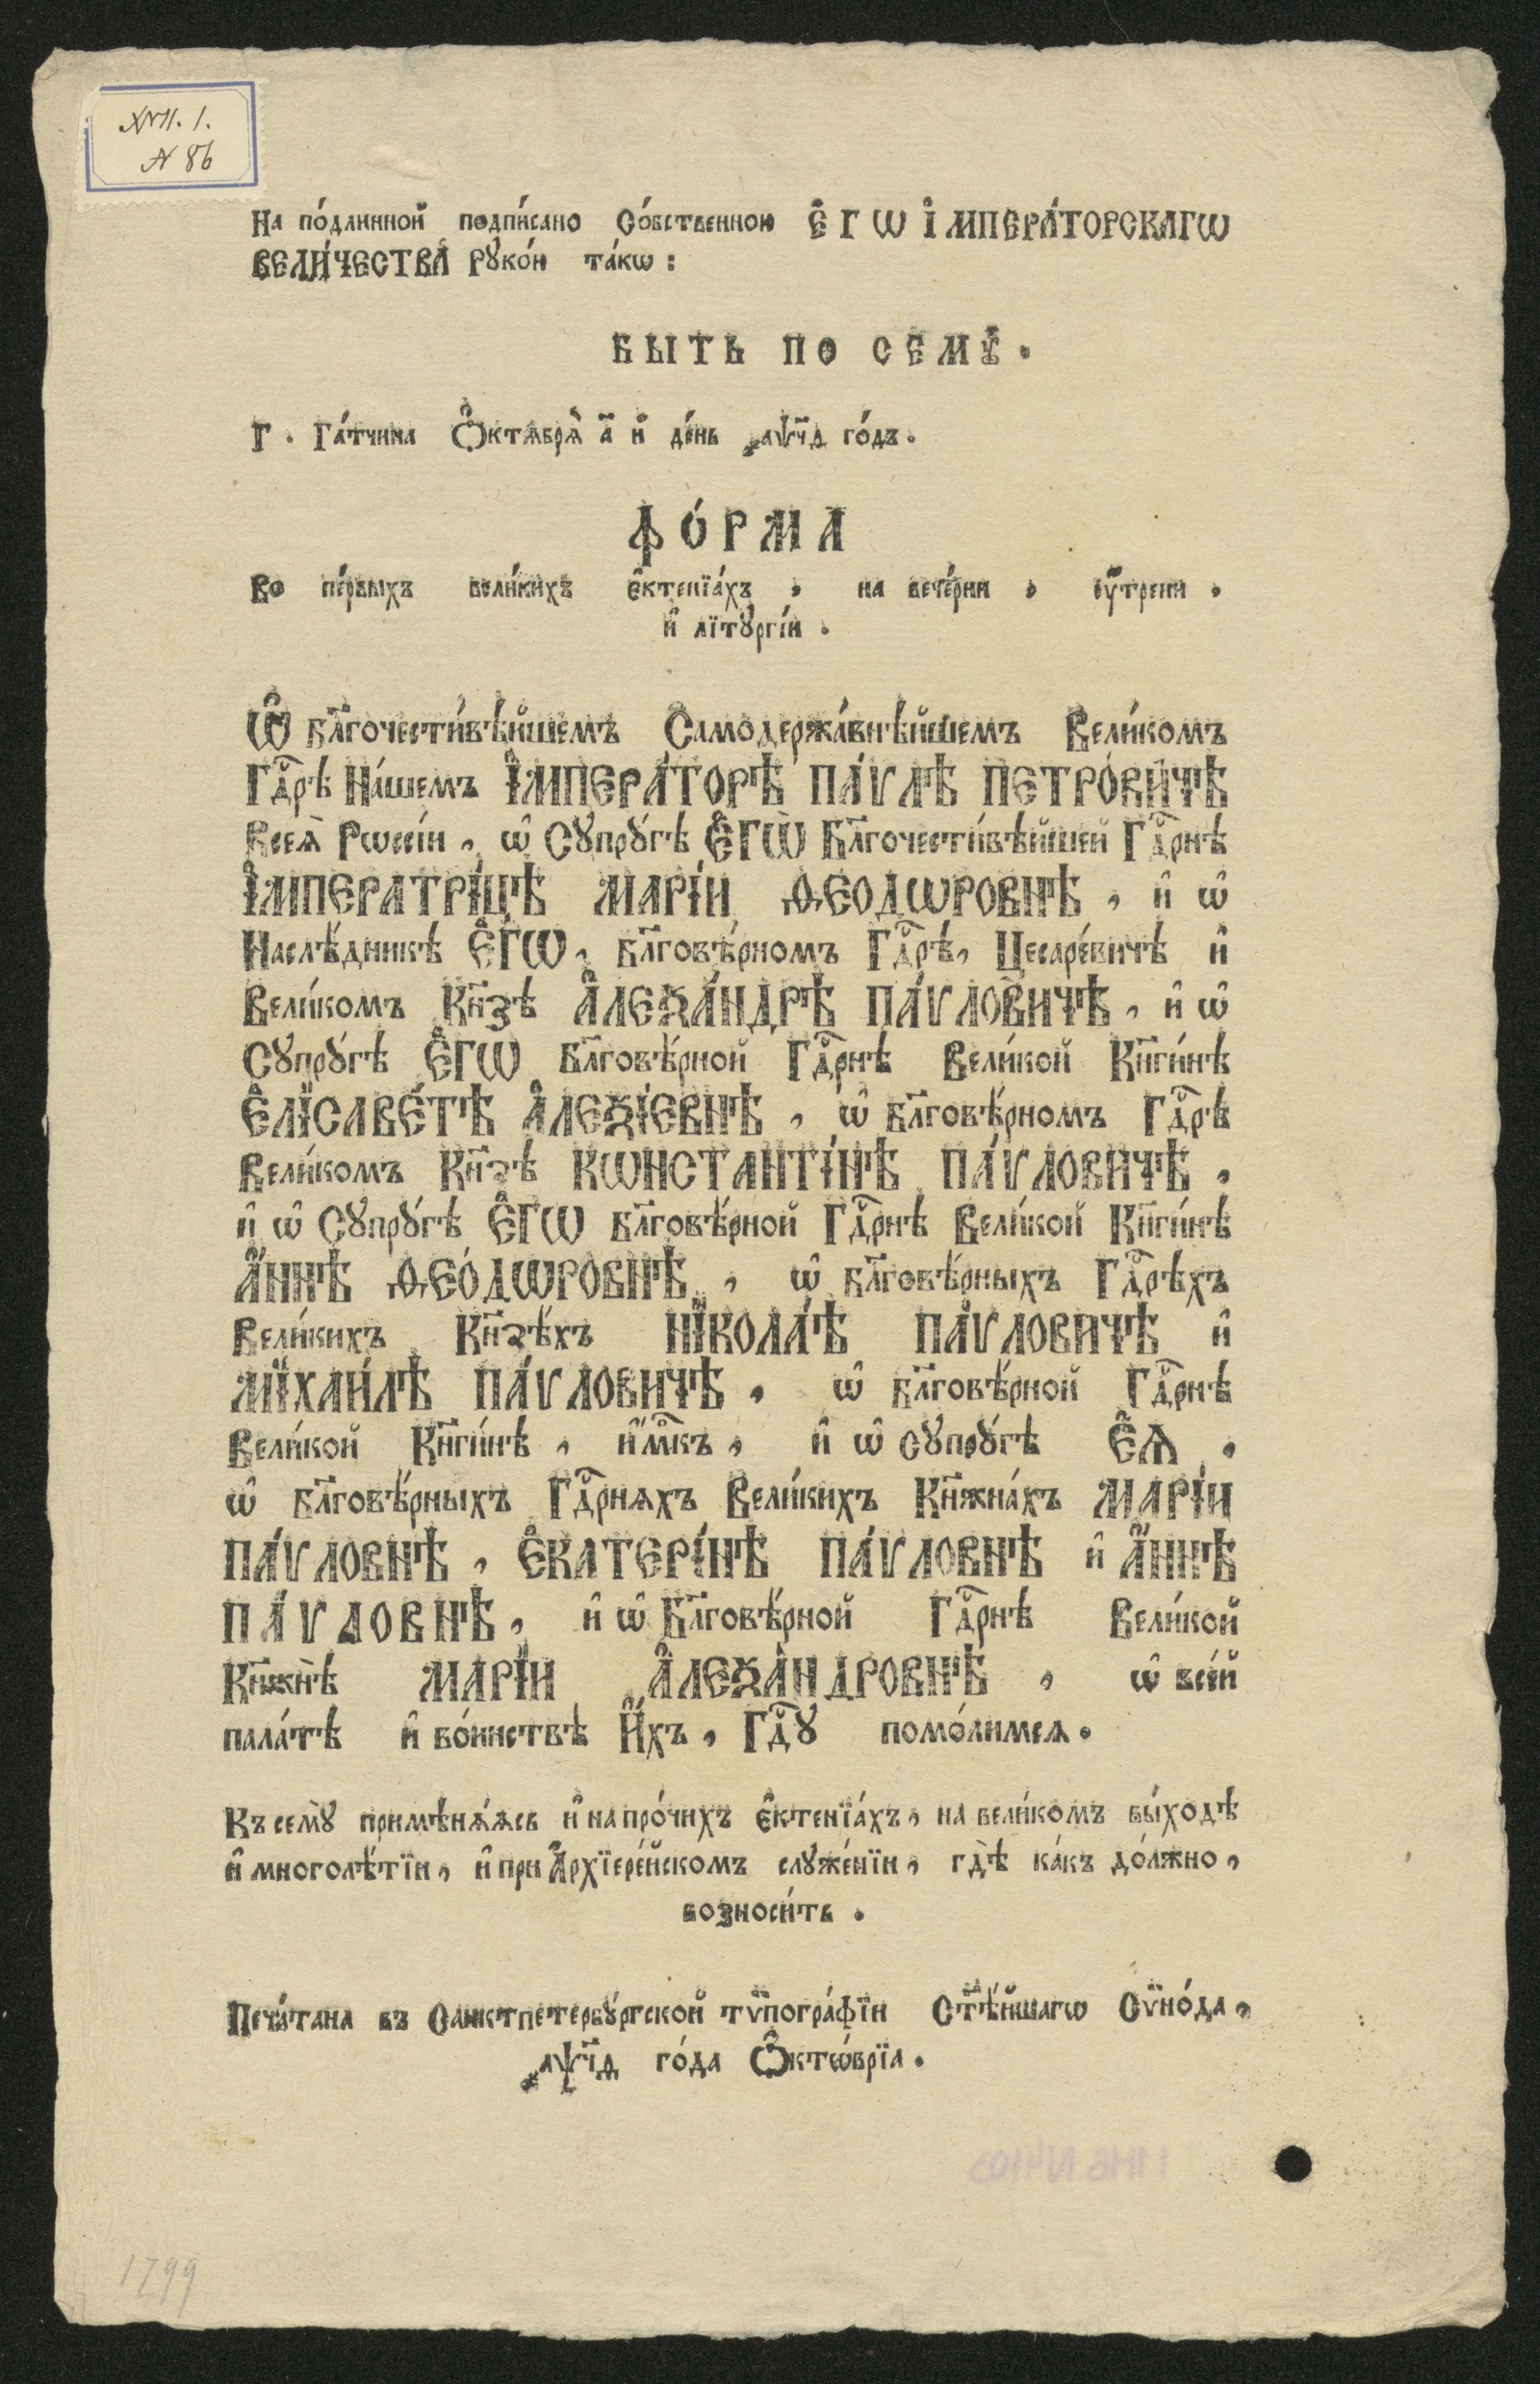 XVII. 1.
N 86
На по́длинной подпи́сано Со́бственною Є҆ГѠ І҆МПЕРА́ТОРСКАГѠ
ВЕЛИ́ЧЕСТВА Рꙋко́ю та́кѡ:
БЫТЬ ПО СЕМꙊ̀.
Г. Га́тчина Ѻ҆ктѧбрѧ̀ а҃ й де́нь ҂аѱч҃ѳ го́дъ.
ФО́РМА
Во пе́рвыхъ вели́кихъ є҆ктенїа́хъ, на вече́рни, ᲂу҆́трени,
и҆ лїтꙋргі́и.
Ѽ Бл҃гочести́вѣйшемъ Самодержа́внѣйшемъ Вели́комъ
Гдⷭ҇рѣ На́шемъ І҆МПЕРА́ТОРѢ ПА́ѴЛѢ ПЕТРО́ВИЧѢ
Всеѧ̀ Рѡссі́и, ѡ҆ Сꙋпрꙋ́гѣ Є҆ГѠ̀ Бл҃гочести́вѣйшей Гдⷭ҇рнѣ
І҆МПЕРАТРІ́ЦѢ МАРІ́И ѲЕОДѠРОВНѢ, и҆ ѡ҆
Наслѣ́дникѣ Є҆ГѠ̀, Бл҃говѣ́рномъ Гдⷭ҇рѣ, Цесаре́вичѣ и҆
Вели́комъ Кн҃зѣ А҆ЛЕѮА́НДРѢ ПА́ѴЛОВИЧѢ, и҆ ѡ҆
Сꙋпрꙋ́гѣ Є҆ГѠ̀ Бл҃говѣ́рной Гдⷭ҇рнѣ Вели́кой Кн҃ги́нѣ
Є҆ЛІСАВЕ́ТѢ А҆ЛЕѮІ́ЕВНѢ, ѡ҆ Бл҃говѣ́рномъ Гдⷭ҇рѣ
Вели́комъ Кн҃зѣ КѠНСТАНТІ́НѢ ПА́ѴЛОВИЧѢ,
и҆ ѡ҆ Сꙋпрꙋ́гѣ Є҆ГѠ̀ Бл҃говѣ́рной Гдⷭ҇рнѣ Вели́кой Кн҃ги́нѣ
А҆́ННѢ ѲЕО́ДѠРОВНѢ, ѡ҆ Бл҃говѣ́рныхъ Гдⷭ҇рѣхъ
Вели́кихъ Кн҃зѣ́хъ НІКОЛА́Ѣ ПА́ѴЛОВИЧѢ и҆
МІХАИ́ЛѢ ПА́ѴЛОВИЧѢ, ѡ҆ Бл҃говѣ́рной Гдⷭ҇рнѣ
Вели́кой Кн҃ги́нѣ, и҆́м҃къ, и҆ ѡ҆ сꙋпрꙋ́гѣ Є҆Ѧ̀,
ѡ҆ Бл҃говѣ́рныхъ Гдⷭ҇рнѧхъ Вели́кихъ Кн҃жна́хъ МАРІ́И
ПА́ѴЛОВНѢ, Є҆КАТЕРІ́НѢ ПА́ѴЛОВНѢ и҆ А҆́ННѢ
ПА́ѴЛОВНѢ, и҆ ѡ҆ Бл҃говѣ́рной Гдⷭ҇рнѣ Вели́кой
Кн҃жнѣ̀ МАРІ́И А҆ЛЕѮА́НДРОВНѢ, ѡ҆ все́й
пала́тѣ и҆ во́инствѣ И҆́хъ, Гдⷭ҇ꙋ помо́лимсѧ.
Къ семꙋ̀ примѣнѧ́ѧсь и҆ на про́чихъ є҆ктенїа́хъ, на вели́комъ вы́ходѣ
и҆ многолѣ́тїи, и҆ при А҆рхїере́йскомъ слꙋже́нїи, гдѣ̀ ка́къ до́лжно,
возноси́ть.
Печа́тана въ Санктпетербꙋ́ргской тѷпогра́фїи Ст҃ѣ́йшагѡ Сѷно́да,
҂аѱч҃ѳ го́да Ѻ҆ктѡ́врїа.
1799